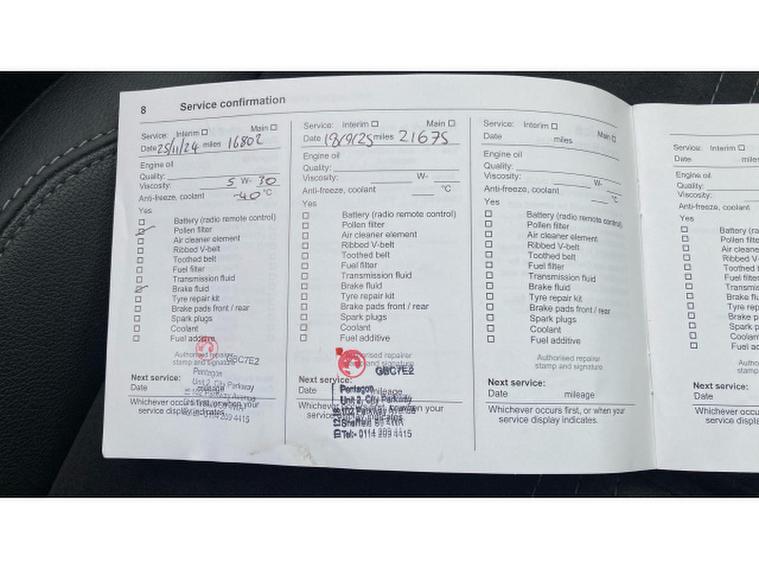 8 Service confirmation
Service: Interim ☐ Main ☐
Date 25/11/24 miles 16802
Engine oil
Quality:
Viscosity: 5 W- 30
Anti-freeze, coolant -40 °C
Yes
☐ Battery (radio remote control)
☑ Pollen filter
☐ Air cleaner element
☐ Ribbed V-belt
☐ Toothed belt
☐ Fuel filter
☐ Transmission fluid
☑ Brake fluid
☐ Tyre repair kit
☐ Brake pads front / rear
☐ Spark plugs
☐ Coolant
☐ Fuel additive
Authorised repairer
stamp and signature
GBC7E2
Pentagon
Unit 2, City Parkway
Next service:
Date mileage
Whichever occurs first, or when your
service display indicates.
Service: Interim ☐ Main ☐
Date 19/9/25 miles 21675
Engine oil
Quality:
Viscosity: W-
Anti-freeze, coolant °C
Yes
☐ Battery (radio remote control)
☐ Pollen filter
☐ Air cleaner element
☐ Ribbed V-belt
☐ Toothed belt
☐ Fuel filter
☐ Transmission fluid
☐ Brake fluid
☐ Tyre repair kit
☐ Brake pads front / rear
☐ Spark plugs
☐ Coolant
☐ Fuel additive
Authorised repairer
stamp and signature
GBC7E2
Pentagon
Unit 2, City Parkway
Sheffield
Tel:- 0114 289 4415
Next service:
Date mileage
Whichever occurs first, or when your
service display indicates.
Service: Interim ☐ Main ☐
Date miles
Engine oil
Quality:
Viscosity: W-
Anti-freeze, coolant °C
Yes
☐ Battery (radio remote control)
☐ Pollen filter
☐ Air cleaner element
☐ Ribbed V-belt
☐ Toothed belt
☐ Fuel filter
☐ Transmission fluid
☐ Brake fluid
☐ Tyre repair kit
☐ Brake pads front / rear
☐ Spark plugs
☐ Coolant
☐ Fuel additive
Authorised repairer
stamp and signature
Next service:
Date mileage
Whichever occurs first, or when your
service display indicates.
Service: Interim ☐
Date miles
Engine oil
Quality:
Viscosity:
Anti-freeze, coolant
Yes
☐ Battery (ra
☐ Pollen filte
☐ Air cleane
☐ Ribbed V-
☐ Toothed b
☐ Fuel filter
☐ Transmis
☐ Brake flu
☐ Tyre repa
☐ Brake pa
☐ Spark plu
☐ Coolant
☐ Fuel ad
Auth
stam
Next service:
Date
Whichever occurs
service displa